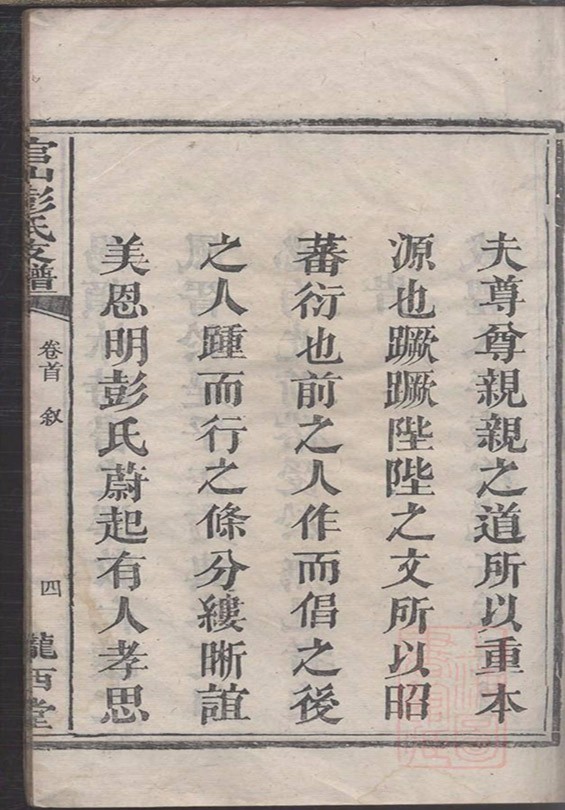 夫尊尊親親之道所以重本
源也蹶蹶陛陛之文所以昭
蕃衍也前之人作而倡之後
之人踵而行之條分縷晰誼
美恩明彭氏蔚起有人孝思
官山彭氏支譜
卷首 敘
四
隴西堂